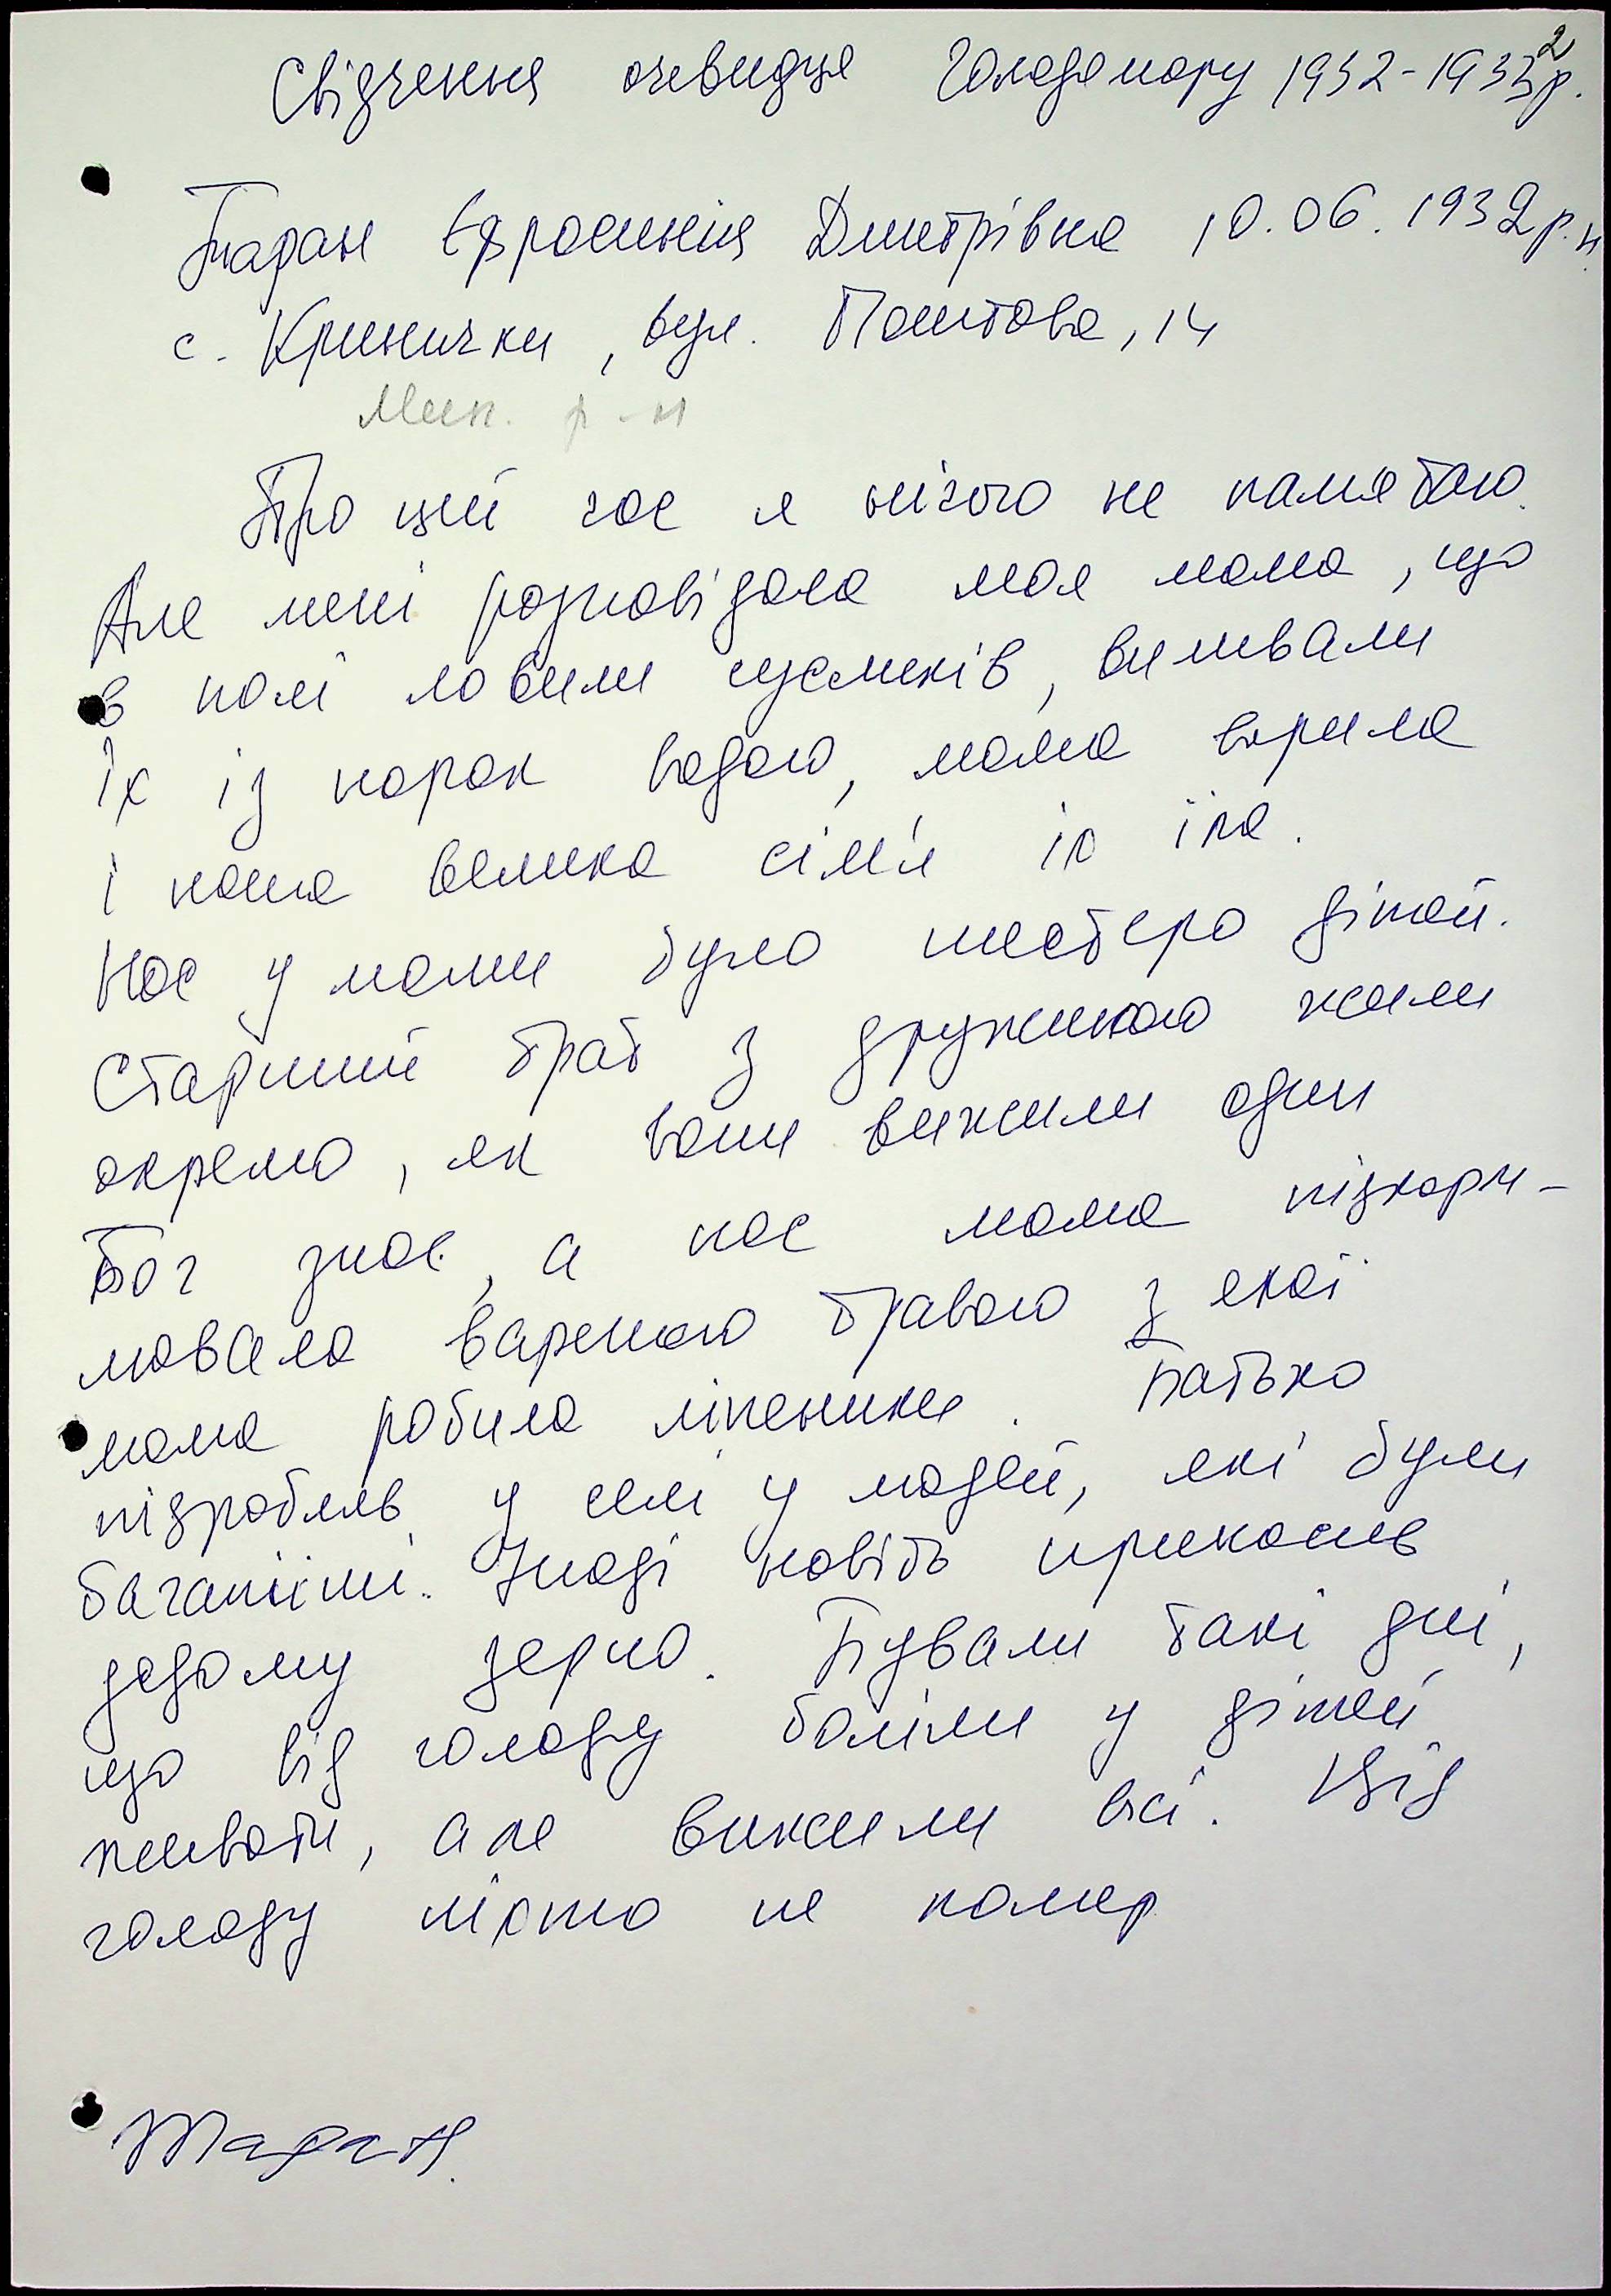 2
Свідчення очевидця Голодомору 1932-1933р.
Таран Єфросинія Дмитрівна 10.06.1932р.н.
с. Кринички, вул. Поштова, 14
Мик. р-н
Про цей час я нічого не памятаю.
Але мені розповідала моя мама, що
в полі ловили сусликів, виливали
їх із норок водою, мама варила
і наша велика сім'я їх їла.
Нас у мами було шестеро дітей.
Старший брат з дружиною жили
окремо, як вони вижили один
Бог знає, а нас мама підкорм-
мовала вареною травою з якої
мама робила ліпеники. Батько
підробляв у селі у людей, які були
багатіші. Іноді навіть приносив
додому зерно. Бували такі дні,
що від голоду боліли у дітей
животи, але вижили всі. Від
голоду ніхто не помер
Таран.